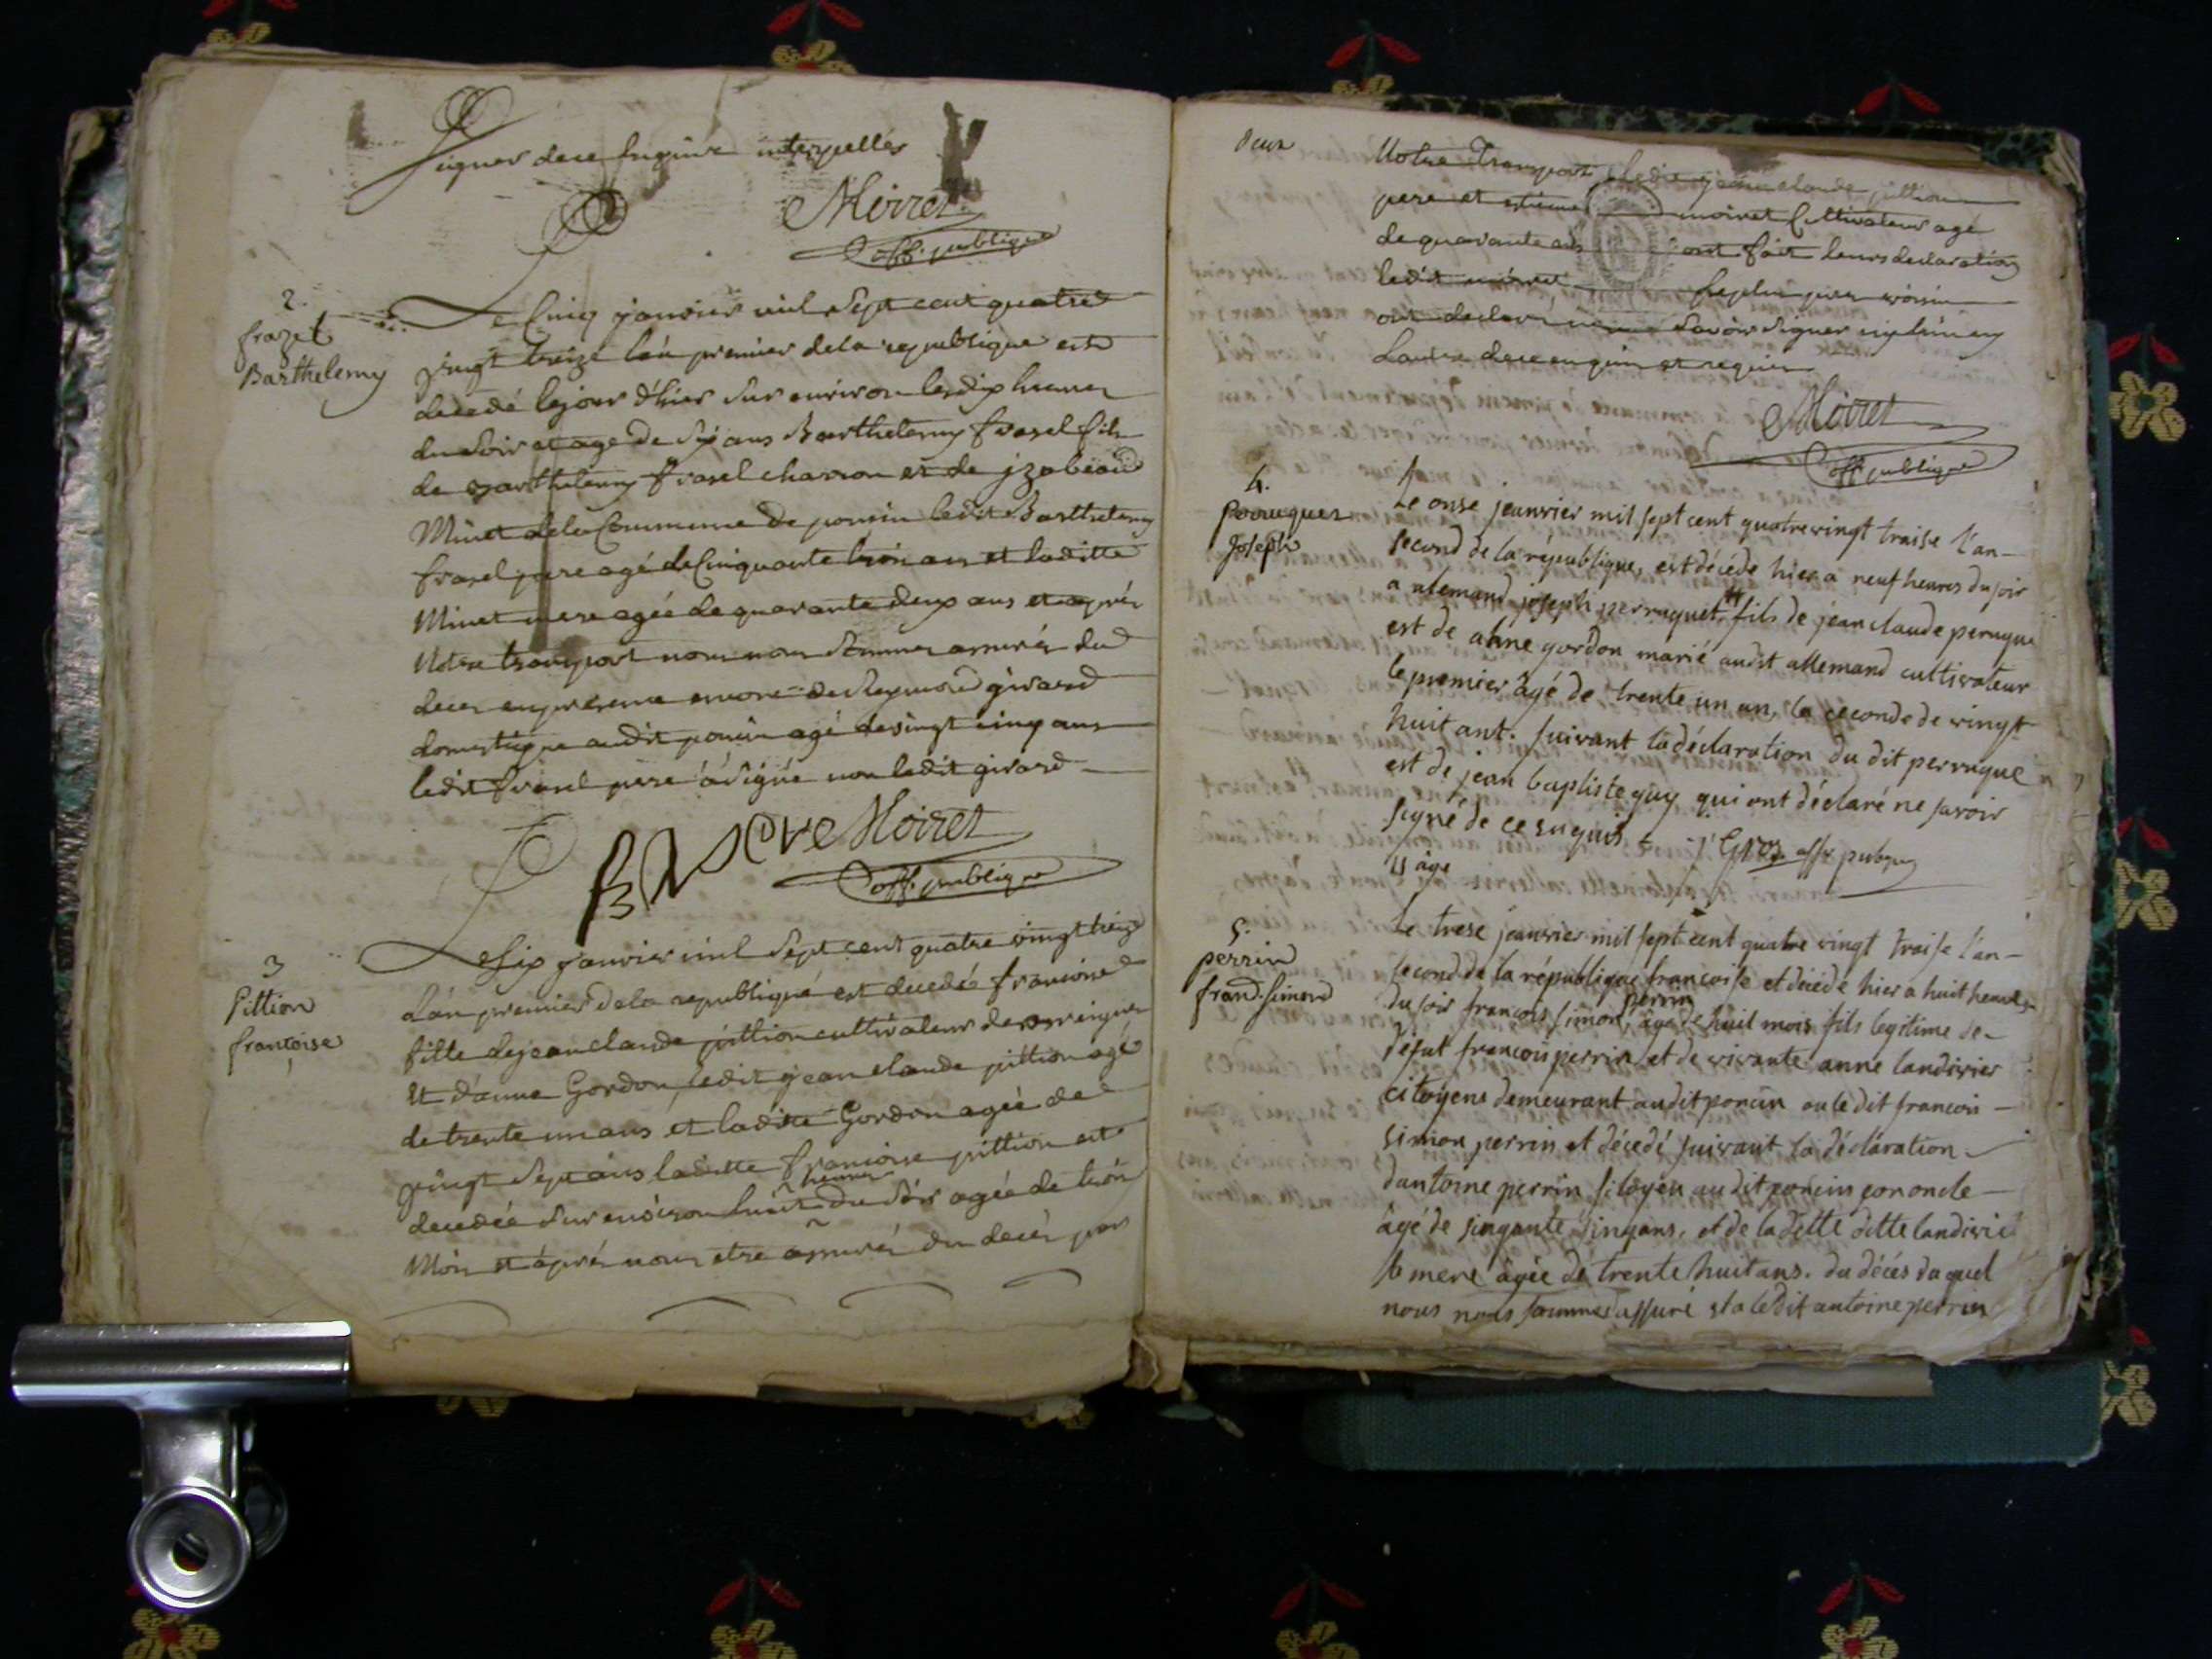 Signer dece Enquire interpellés
Moiret
off. publique
2.
frazet
Barthelemy
Le Cinq janvier mil Sept cent quatre
vingt treize l'an premier de la republique est
decedé le jour d'hier Sur environ les dix heures
du Soir et age de Six ans Barthelemy frasel fils
de Barthelemy frasel charron et de jzabeau
Minet de la Commune de poncin ledit Barthelemy
frasel pere agé de Cinquante trois ans et laditte
Minet mere agée de quarante deux ans et aprés
Notre transport nous nous Sommes assurés du
deces en presence encore de Reymond girard
domestique audit poncin agé de vingt cinq ans
ledit frasel pere à Signé non ledit girard
Moiret
off. publique
3
Pittion
francoise
Le Six janvier mil Sept cent quatre vingt treize
L'an premier de la republique est decedée francoise
fille de jean claude pittion cultivateur de
Et d'anne Gordon, ledit jean claude pittion agé
de trente un ans et ladite Gordon agée de
vingt Sept ans laditte francoise pittion est
decedée Sur environ huit heures du Soir agée de trois
Mois et aprés nous etre assurés du decés par
deux
Notre Transport, ledit jean claude pittion
pere et etienne moiret Cultivateur agé
de quarante ans ont fait leurs declaration
ledit moiret le plus pres voisin
ont declaré Savoir Signer ny l'un ny
Lautre dece enquis et requis
Moiret
off. publique
4.
perruquet
Joseph
Le onse jeanvier mil sept cent quatre vingt traise l'an
second de la république, est décédé hier a neuf heures du soir
a alemand joseph perruquet fils de jean claude peruque
est de anne gordon marié audit allemand cultivateur
le premier âgé de trente un an, la ceconde de vingt
huit ant. suivant la déclaration du dit perruque
est de jean baptiste guy qui ont déclaré ne savoir
signé de ce enquis
Gros off. publique
âgé
5.
perrin
franc. simond
le trese jeanvier mil sept cent quatre vingt traise l'an
second de la république francoise et décédé hier a huit heures
du soir francois simon, perrin âgé de huit mois fils legitime de
defut francois perrin et de vivante anne landivier
citoyens demeurant audit poncin ou le dit francois
simon perrin et décedé suivant la déclaration
dantoine perrin sitoyen au dit poncin son oncle
âgé de sinqante sinq ans, et de la dette ditte landivié
sa mere âgée de trente huit ans. du décés duquel
nous nous sommes assuré et a le dit antoine perrin